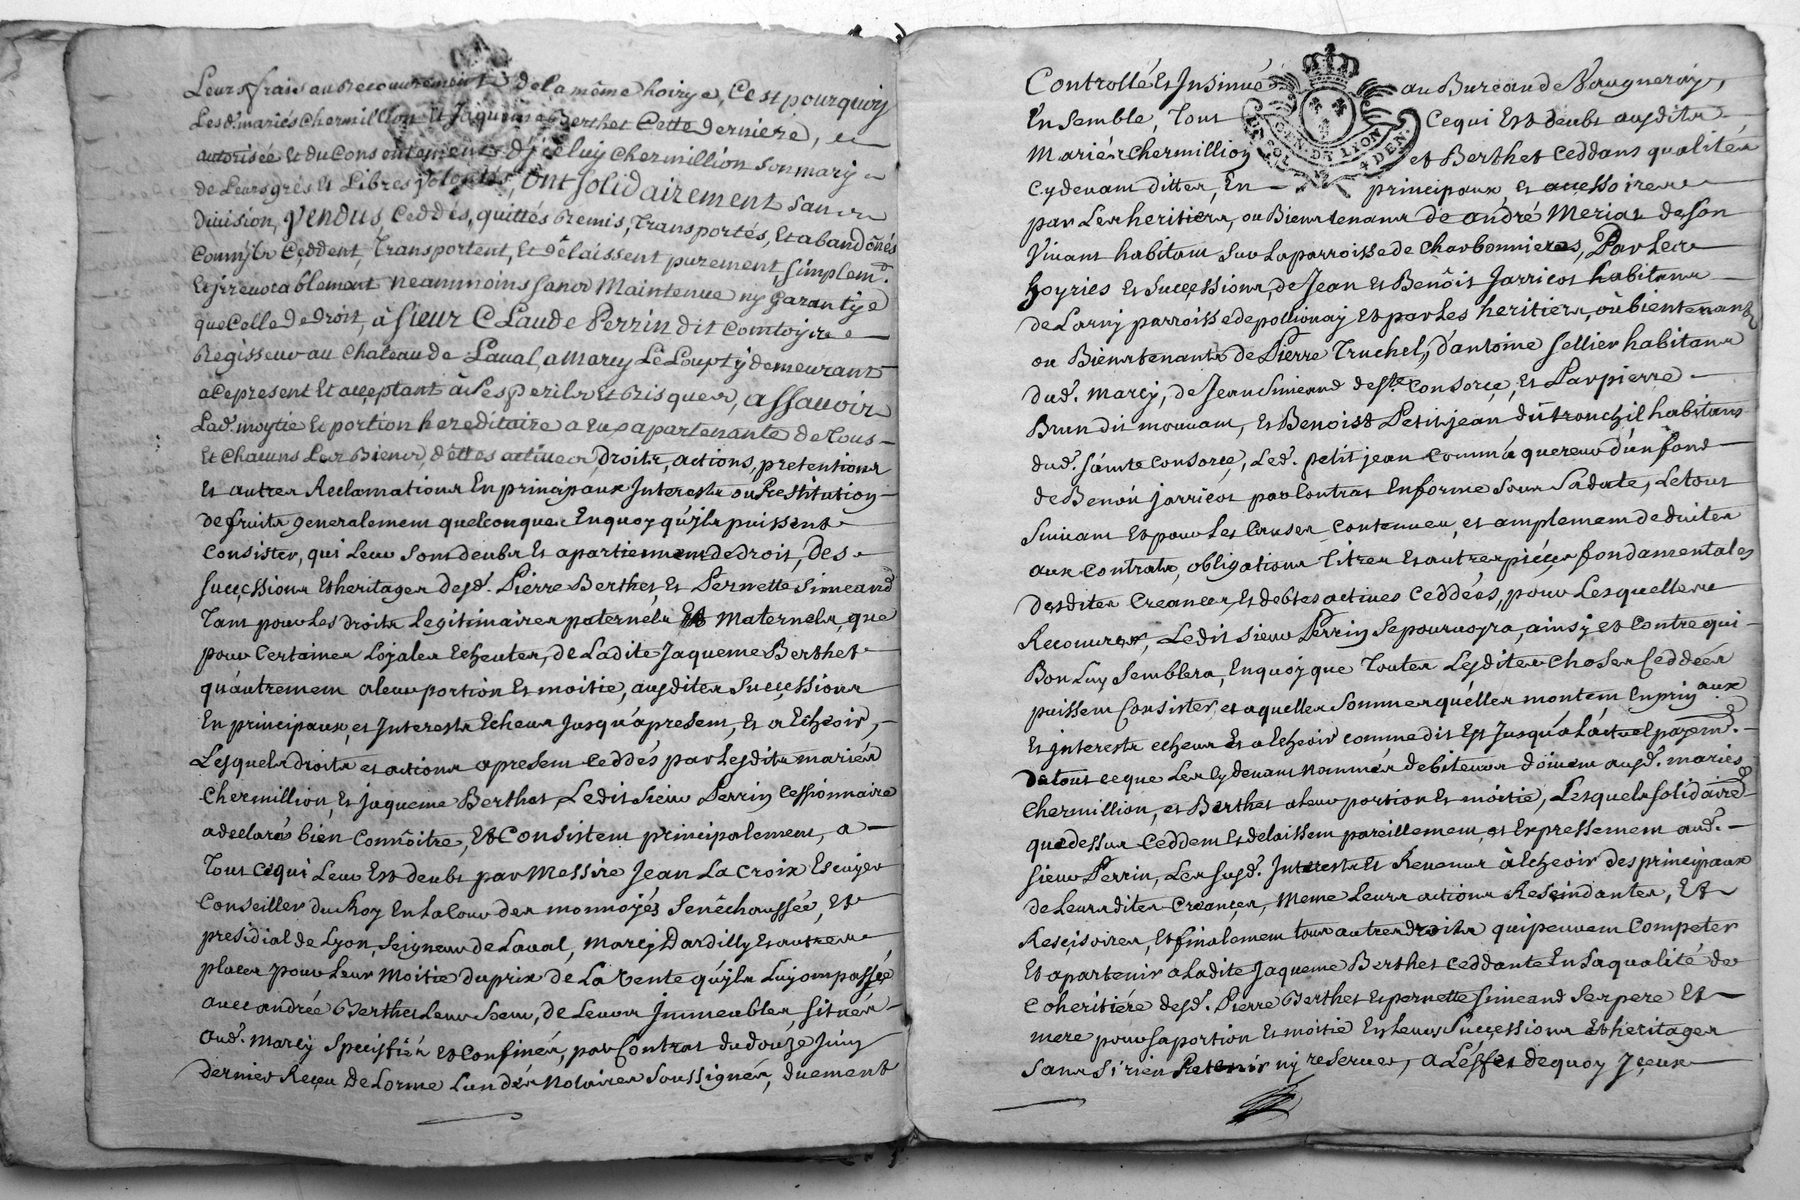 Leurs frais au recouvrement de la même hoirye, C'est pourquoy
Lesd. mariés chermillion et Jaqueme Berthet Cette derniere,
autorisée et du Consentement d'jceluy chermillion son mary
de Leurs grés et Libres volontés, ont solidairement sans
division, vendus Ceddés, quittés remis, Transportés, et abandônés
Comm'jls Ceddent, Transportent, et délaissent purement simplem.t
et jrrevocablement neammoins sans Maintenue ny garantye
que Celle de droit, à sieur Claude Perrin dit Comtoyre
Regisseur au chateau de Laval, a Marcy Le Loup ty demeurant
a ce present et acceptant à ses perils et risques, assavoir
Lad. moytie et portion hereditaire a eux apartenante de Tous
et chacuns Les Biens, dêttes actives droits, actions, pretentions
et autres Reclamations en principaux Interests ou Restitution
de fruits generalement quelconques en quoy qu'jls puissent
Consister, qui Leur sont deubs et apartiennent de droit, Des
successions et heritages desd. Pierre Berthet et Pernette Simeand
Tant pour Les droits Legitimaires paternels et maternels, que
pour Certaines Loyales echeutes, de Ladite Jaqueme Berthet
qu'autrement a leur portion et moitie, ausdites successions
En principaux, et Interests Echeus Jusqu'apresent, et a Echeoir,
Lesquels droits et actions apresent Ceddés par Lesdits mariés
Chermillion, et Jaqueme Berthet, Ledit sieur Perrin Cessionnaire
a declarés bien Connôitre, et Consistent principalement, a
Tout Ce qui Leur est deubt par Messire Jean La Croix Escuyer
Conseiller du Roy en La Cour des monnoyés Senêchaussée, et
presidial de Lyon, Seigneur de Laval, Marcy Dardilly et autres
places pour Leur Moitie du prix de La vente qu'jls Luy ont passée
avec andrée Berthet Leur Sœur, de Leurs Jmmeubles situés
aud. Marcy specifiés et Confinés, par Contrat du douze Juin
dernier Reçeu De Lorme L'un des notaires soussignés, duement
Controllé et Insinué au Bureau de Vaugneray,
Ensemble, Tout Ce qui est deubt ausdits
Mariés Chermillion et Berthet Ceddans qualités
Cydevant dittes, En principaux et accessoires
par Les heritiers, ou Bienstenans de andré Merias de son
vivant habitant sur La parroisse de Charbonnieres, Par Les
hoyries et successions, de Jean et Benôit Jarricot habitans
de Larny parroisse de pollionay et par Les heritiers, où bientenants
ou Bienstenants de Pierre Truchet, d'antoine Sellier habitans
dud. Marcy, de Jean Simeand de s.te Consorce, et Par pierre
Brun dit mouvant, et Benoist Petitjean du tronchil habitans
dud. sainte Consorçe, Led. petit jean Comm'aquereur d'un fond
de Benoit jarricot par Contrat en forme sous sa date, Le tout
suivant et pour Les Causes Contenues, et amplement deduites
aux Contrats, obligations Titres et autres pièces fondamentales
desdites Creances, et debtes actives Ceddées, pour Lesquelles
Recouvrer, Ledit sieur Perrin se pourvoyra, ainsy et Contre qui
Bon Luy semblera, En quoy que Toutes Lesdites choses Ceddées
puissent Consister et a quelles sommes qu'elles montent en prin.aux
et jnterests echeus et a Echeoir comme dit est Jusqu'à L'actuel payem.t
de tout ce que Les Cy devant nommés debiteurs doivent ausd. mariés
Chermillion, et Berthet a Leur portion et moitie, Lesquels solidaire.t
que dessus Ceddent et delaissent pareillement et Expressement aud.
sieur Perrin, Les susd. Interests et Revenus à Echeoir des principaux
de Leursdites Creances, Meme Leurs actions Rescindantes, et
Resçisoires, et finalement tous autres droits qui peuvent Competer
et apartenir a Ladite Jaqueme Berthet Ceddante en sa qualité de
Coheritiére desd. Pierre Berthet et pernette simeand ses pere et
mere pour sa portion et moitie es Leurs Successions et heritages
sans si rien Retenir ny reserver, a L'éffet de quoy Jçeux
GEN. DE LYON
UN SOL 4 DEN.